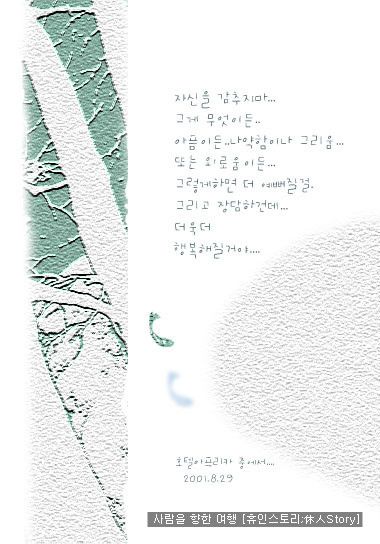 자신을 감추지마...
그게 무엇이든..
아픔이든..나약함이나 그리움...
또는 외로움이든...
그렇게하면 더 예뻐질걸.
그리고 장담하건데...
더욱더
행복해질거야....
호텔아프리카 중에서....
2001.8.29
사람을 향한 여행 [휴인스토리:休人Story]